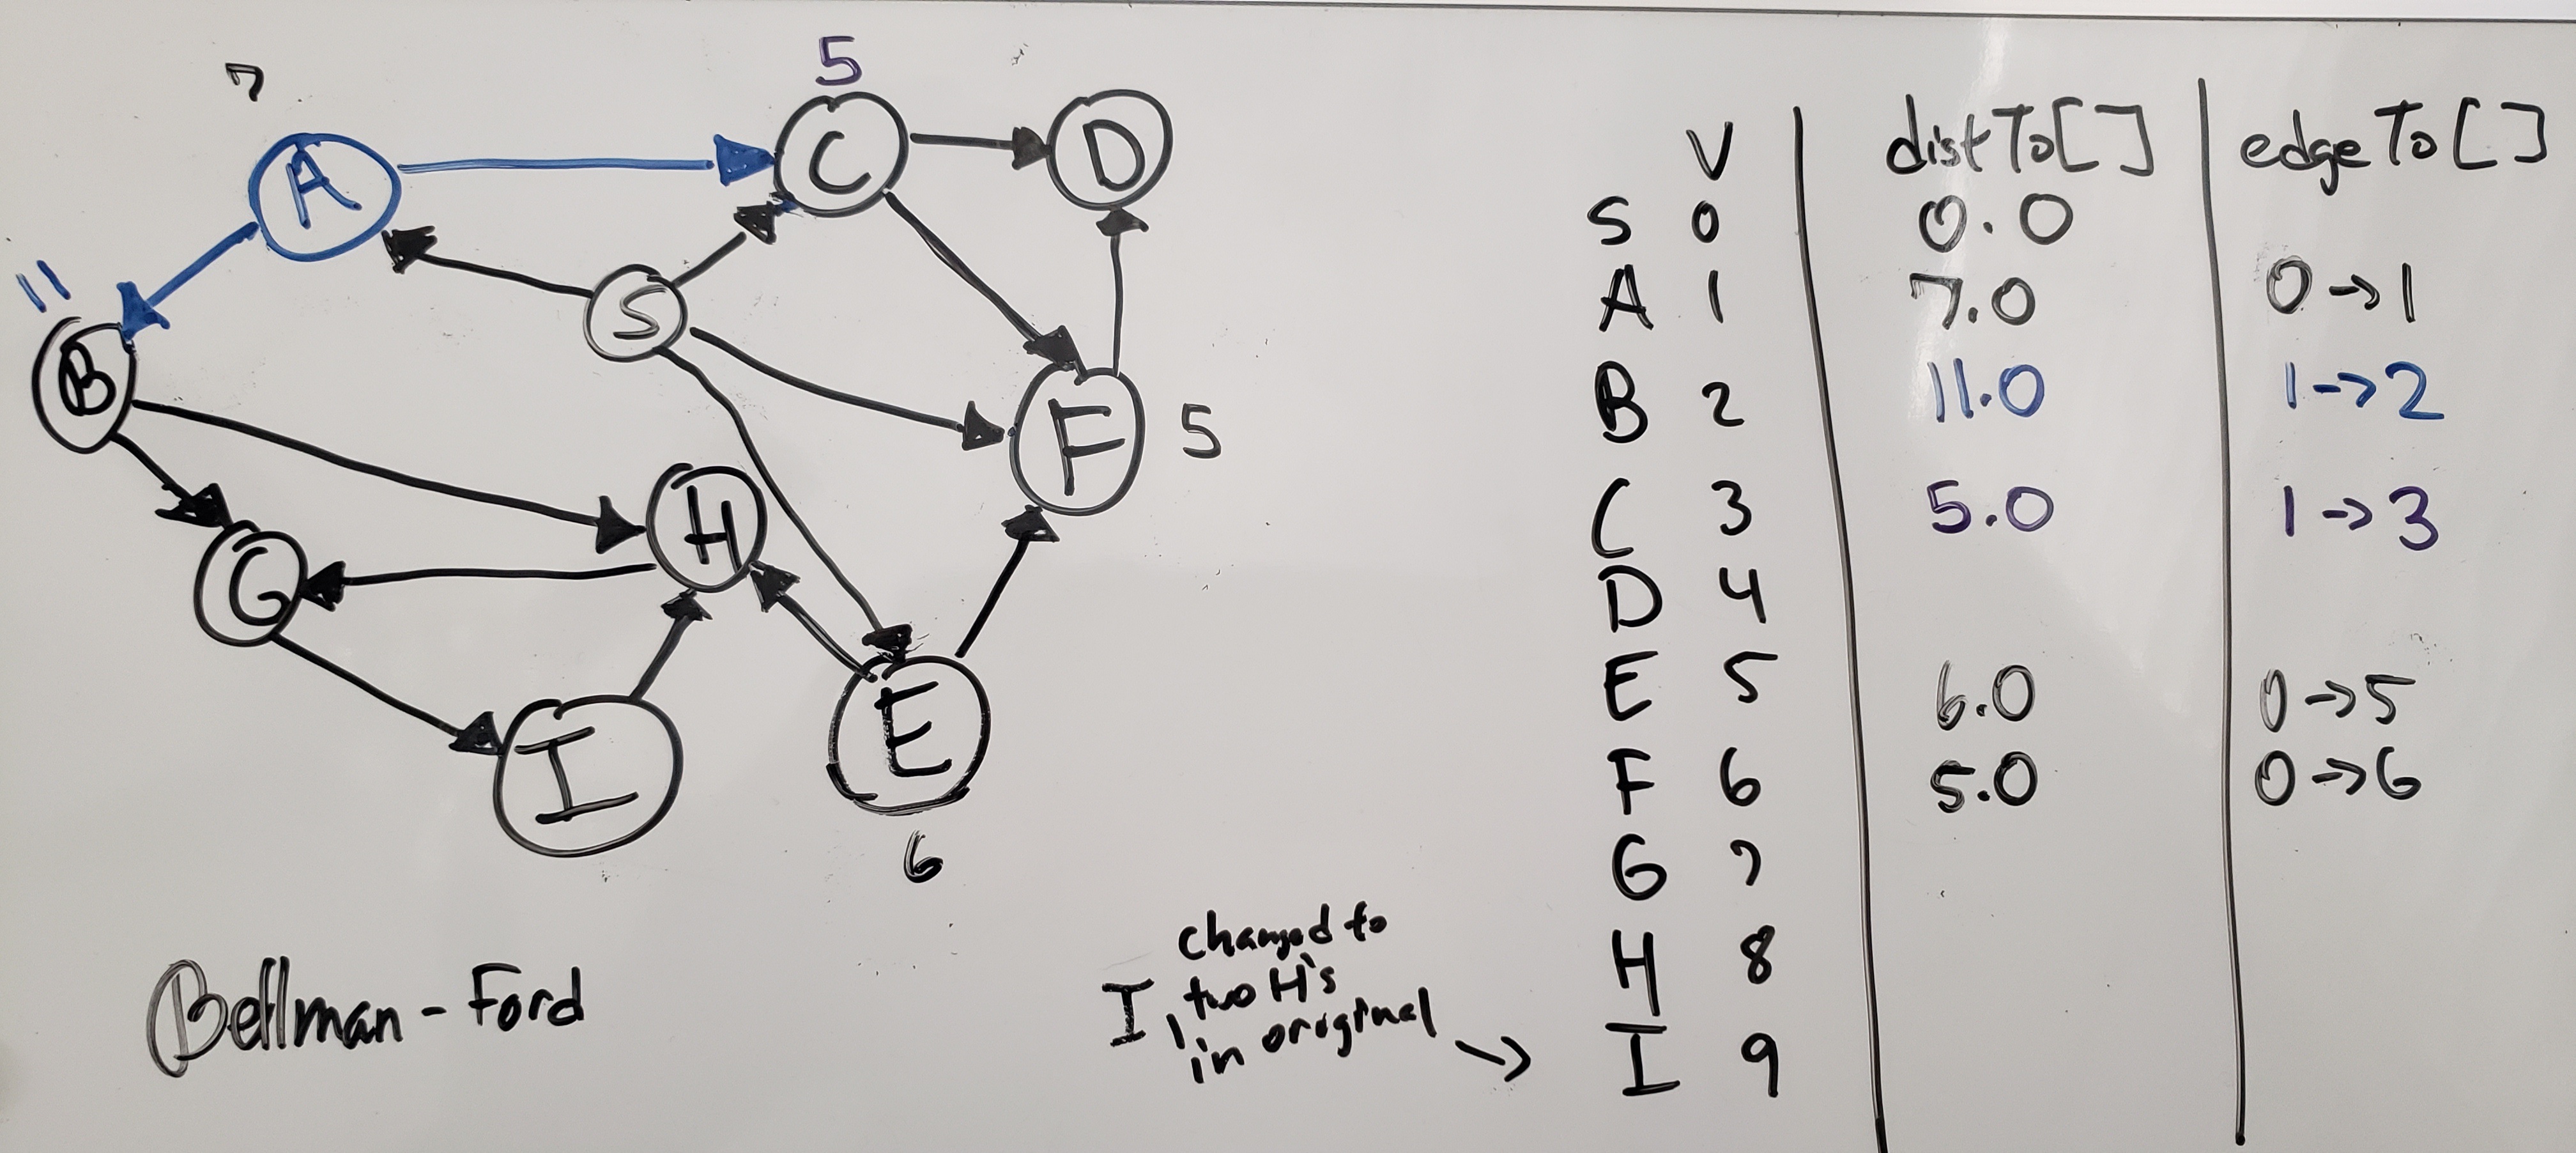 7
5
A
C
D
S
11
B
F
5
H
G
E
I
6
Bellman - Ford
changed to
I, two H's
in original →
V distTo[] edgeTo[]
S 0 0.0
A 1 7.0 0→1
B 2 11.0 1→2
C 3 5.0 1→3
D 4
E 5 6.0 0→5
F 6 5.0 0→6
G 7
H 8
I 9